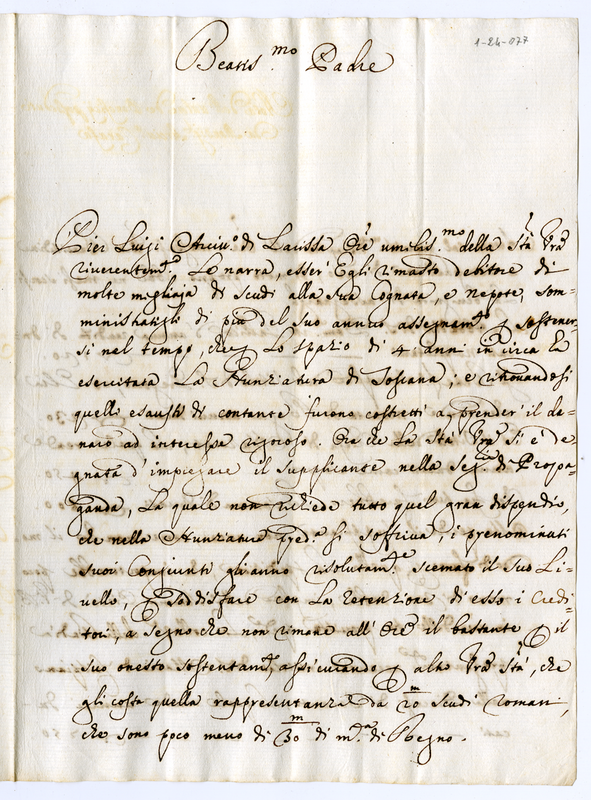 1-24-077
Beatis.mo Padre
Pier Luigi Arciv.o di Larissa Ore umilis.mo della Stà Vra
riverentem.e Le narra, esser Egli rimasto debitore di
molte migliaja di scudi alla sua Cognata, e Nepote, som=
ministratigli di più del suo annuo assegnam.o p sostener=
si nel tempo, che p lo spazio di 4 anni in circa ha
esercitata la Nunziatura di Toscana; e ritrovandosi
quelli esausti di contante furono costretti a prender il de=
naro ad interesse rigoroso. Ora che la Stà Vra si è de=
gnata d'impiegare il supplicante nella Seg.ria di Propa=
ganda, la quale non richiede tutto quel gran dispendio,
che nella Nunziatura pred.a si soffriva, i prenominati
suoi Congiunti gli anno risolutam.e scemato il suo Li=
vello, p soddisfare con la retenzione di esso i Credi=
tori, a segno che non rimane all' Ore il bastante p il
suo onesto sostentam.o, assicurando p altro Vra Stà, che
gli costa quella rappresentanza da 20 m scudi romani,
che sono poco meno di 30 m di m.ta di Regno.